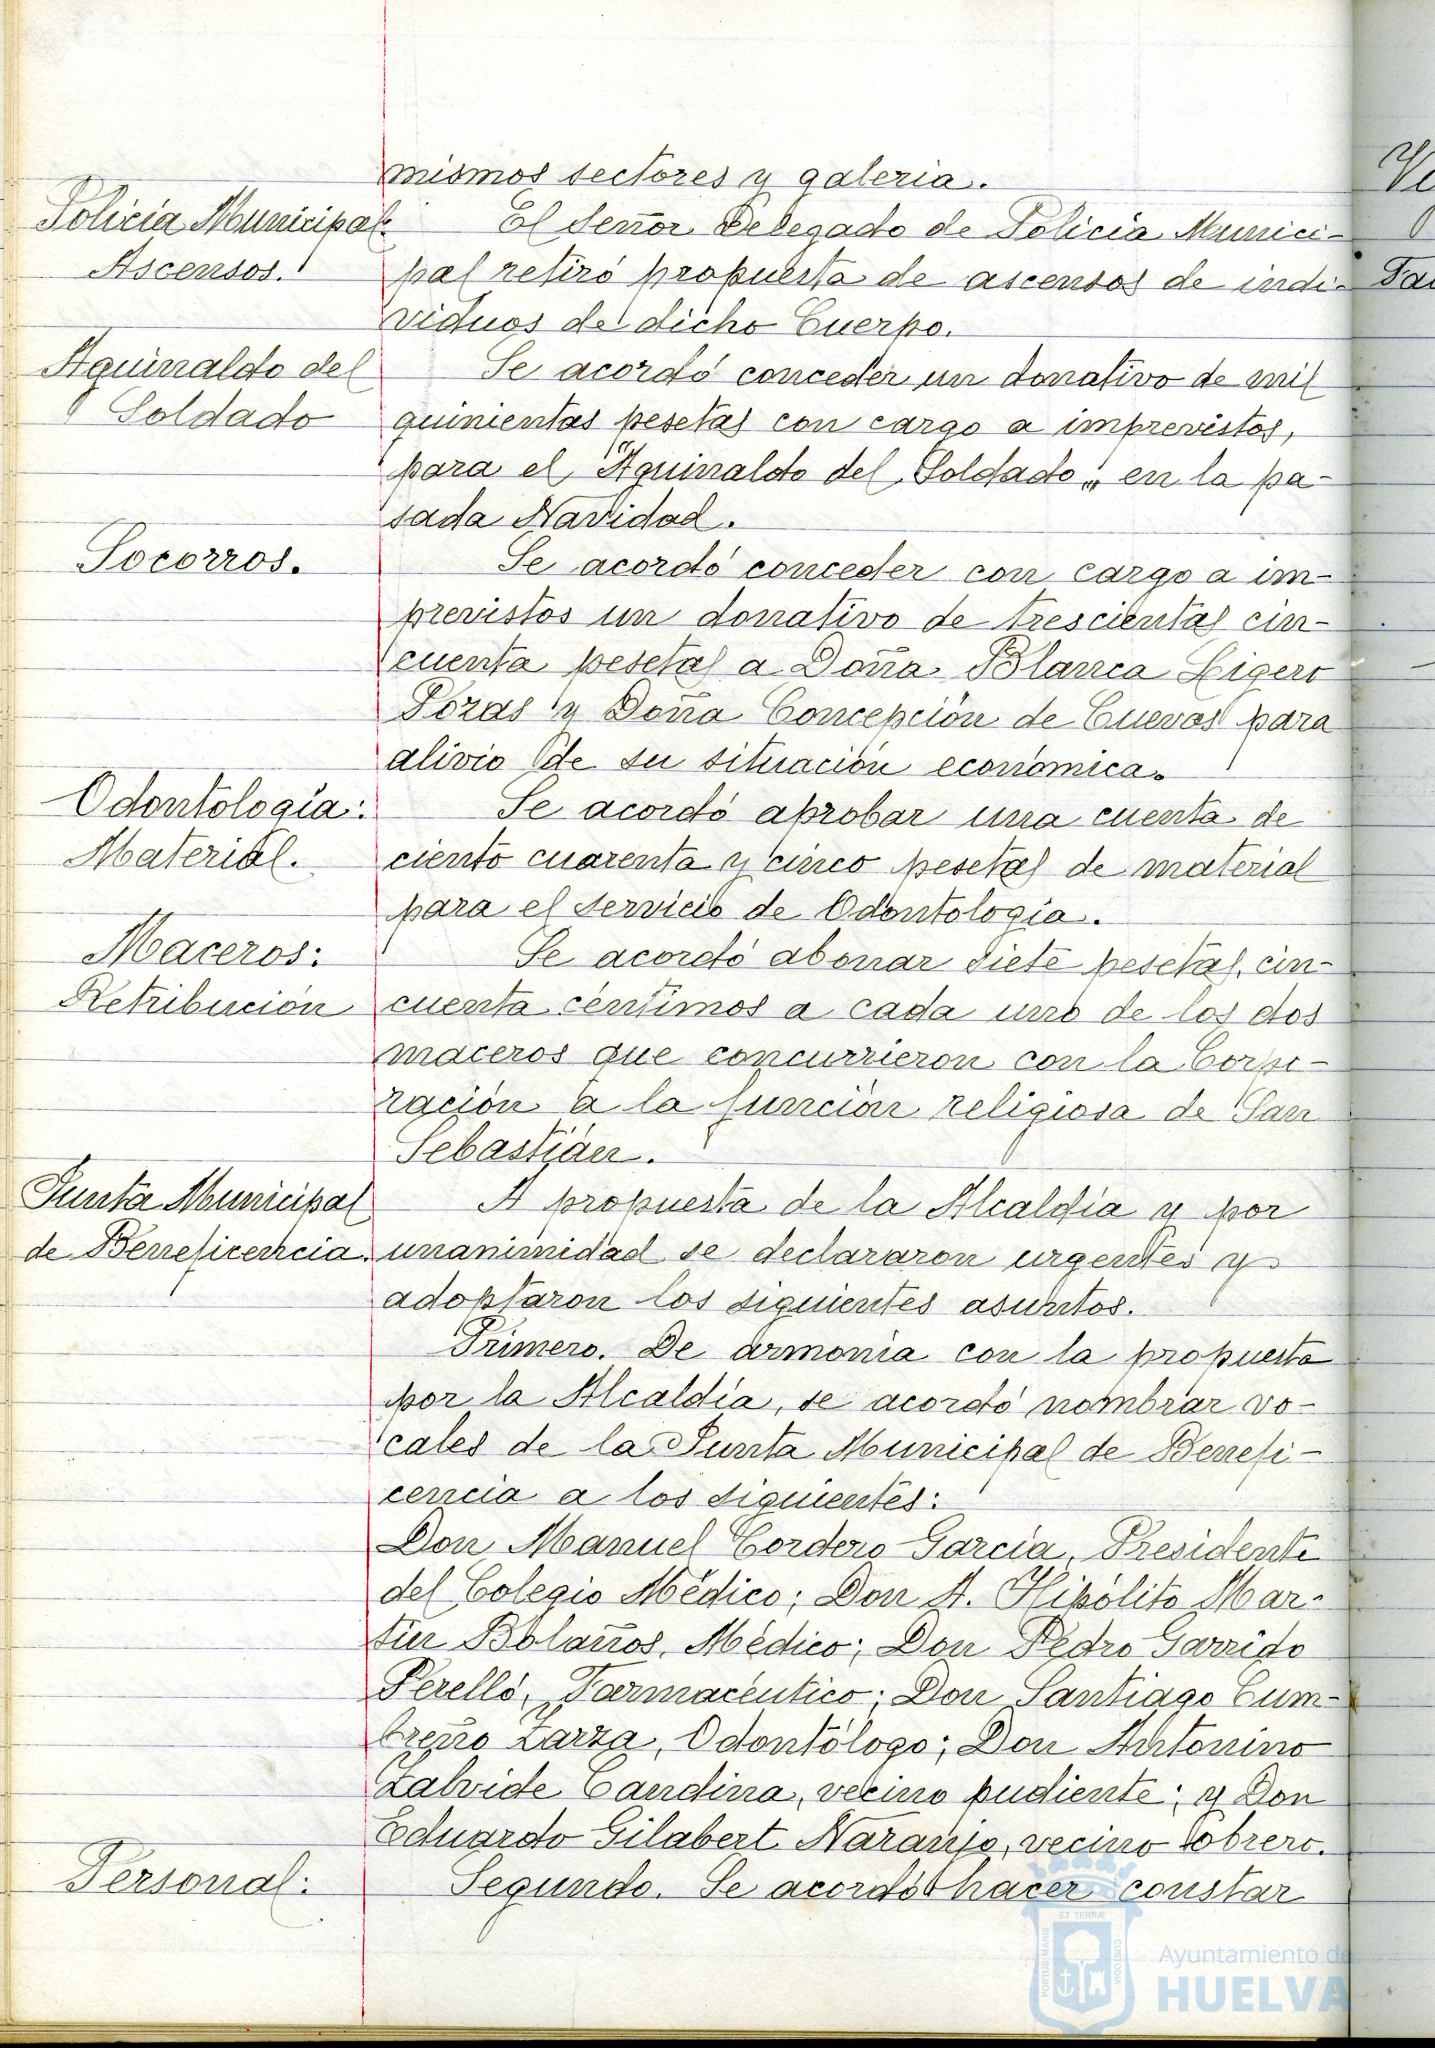 mismos sectores y galeria.
Policía Municipal:
Ascensos.
El Señor Delegado de Policía Munici-
pal retiró propuesta de ascensos de indi-
viduos de dicho Cuerpo.
Aguinaldo del
Soldado
Se acordó conceder un donativo de mil
quinientas pesetas con cargo a imprevistos,
para el "Aguinaldo del Soldado" en la pa-
sada Navidad.
Socorros.
Se acordó conceder con cargo a im-
previstos un donativo de trescientas cin-
cuenta pesetas a Doña Blanca Ligero
Pozas y Doña Concepción de Cuevas para
alivio de su situación económica.
Odontología:
Material.
Se acordó aprobar una cuenta de
ciento cuarenta y cinco pesetas de material
para el servicio de Odontologia.
Maceros:
Retribución
Se acordó abonar siete pesetas, cin-
cuenta céntimos a cada uno de los dos
maceros que concurrieron con la Corpo-
ración a la función religiosa de San
Sebastián.
Junta Municipal
de Beneficencia.
A propuesta de la Alcaldía y por
unanimidad se declararon urgentes y
adoptaron los siguientes asuntos.
Primero. De armonía con la propuesta
por la Alcaldía, se acordó nombrar vo-
cales de la Junta Municipal de Benefi-
cencia a los siguientes:
Don Manuel Cordero García, Presidente
del Colegio Médico; Don A. Hipólito Mar-
tín Bolaños, Médico; Don Pedro Garrido
Perelló, Farmacéutico; Don Santiago Cum-
breño Zarza, Odontólogo; Don Antonino
Zalvide Candina, vecino pudiente; y Don
Eduardo Gilabert Naranjo, vecino obrero.
Personal:
Segundo. Se acordó hacer constar
ET TERRÆ
PORTUS MARIS
CUSTODIA
Ayuntamiento de
HUELVA